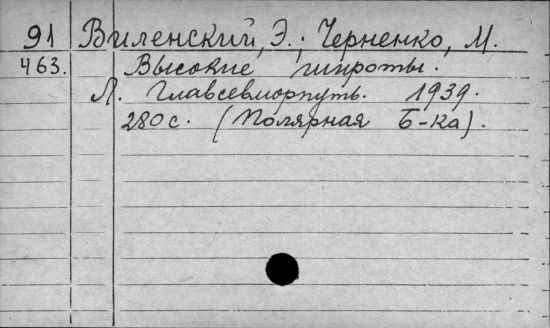 91 Виленский, Э.; Черненко, М.
463. Высокие широты.
Л. Главсевморпуть. 1939.
280 с. (Полярная б-ка).